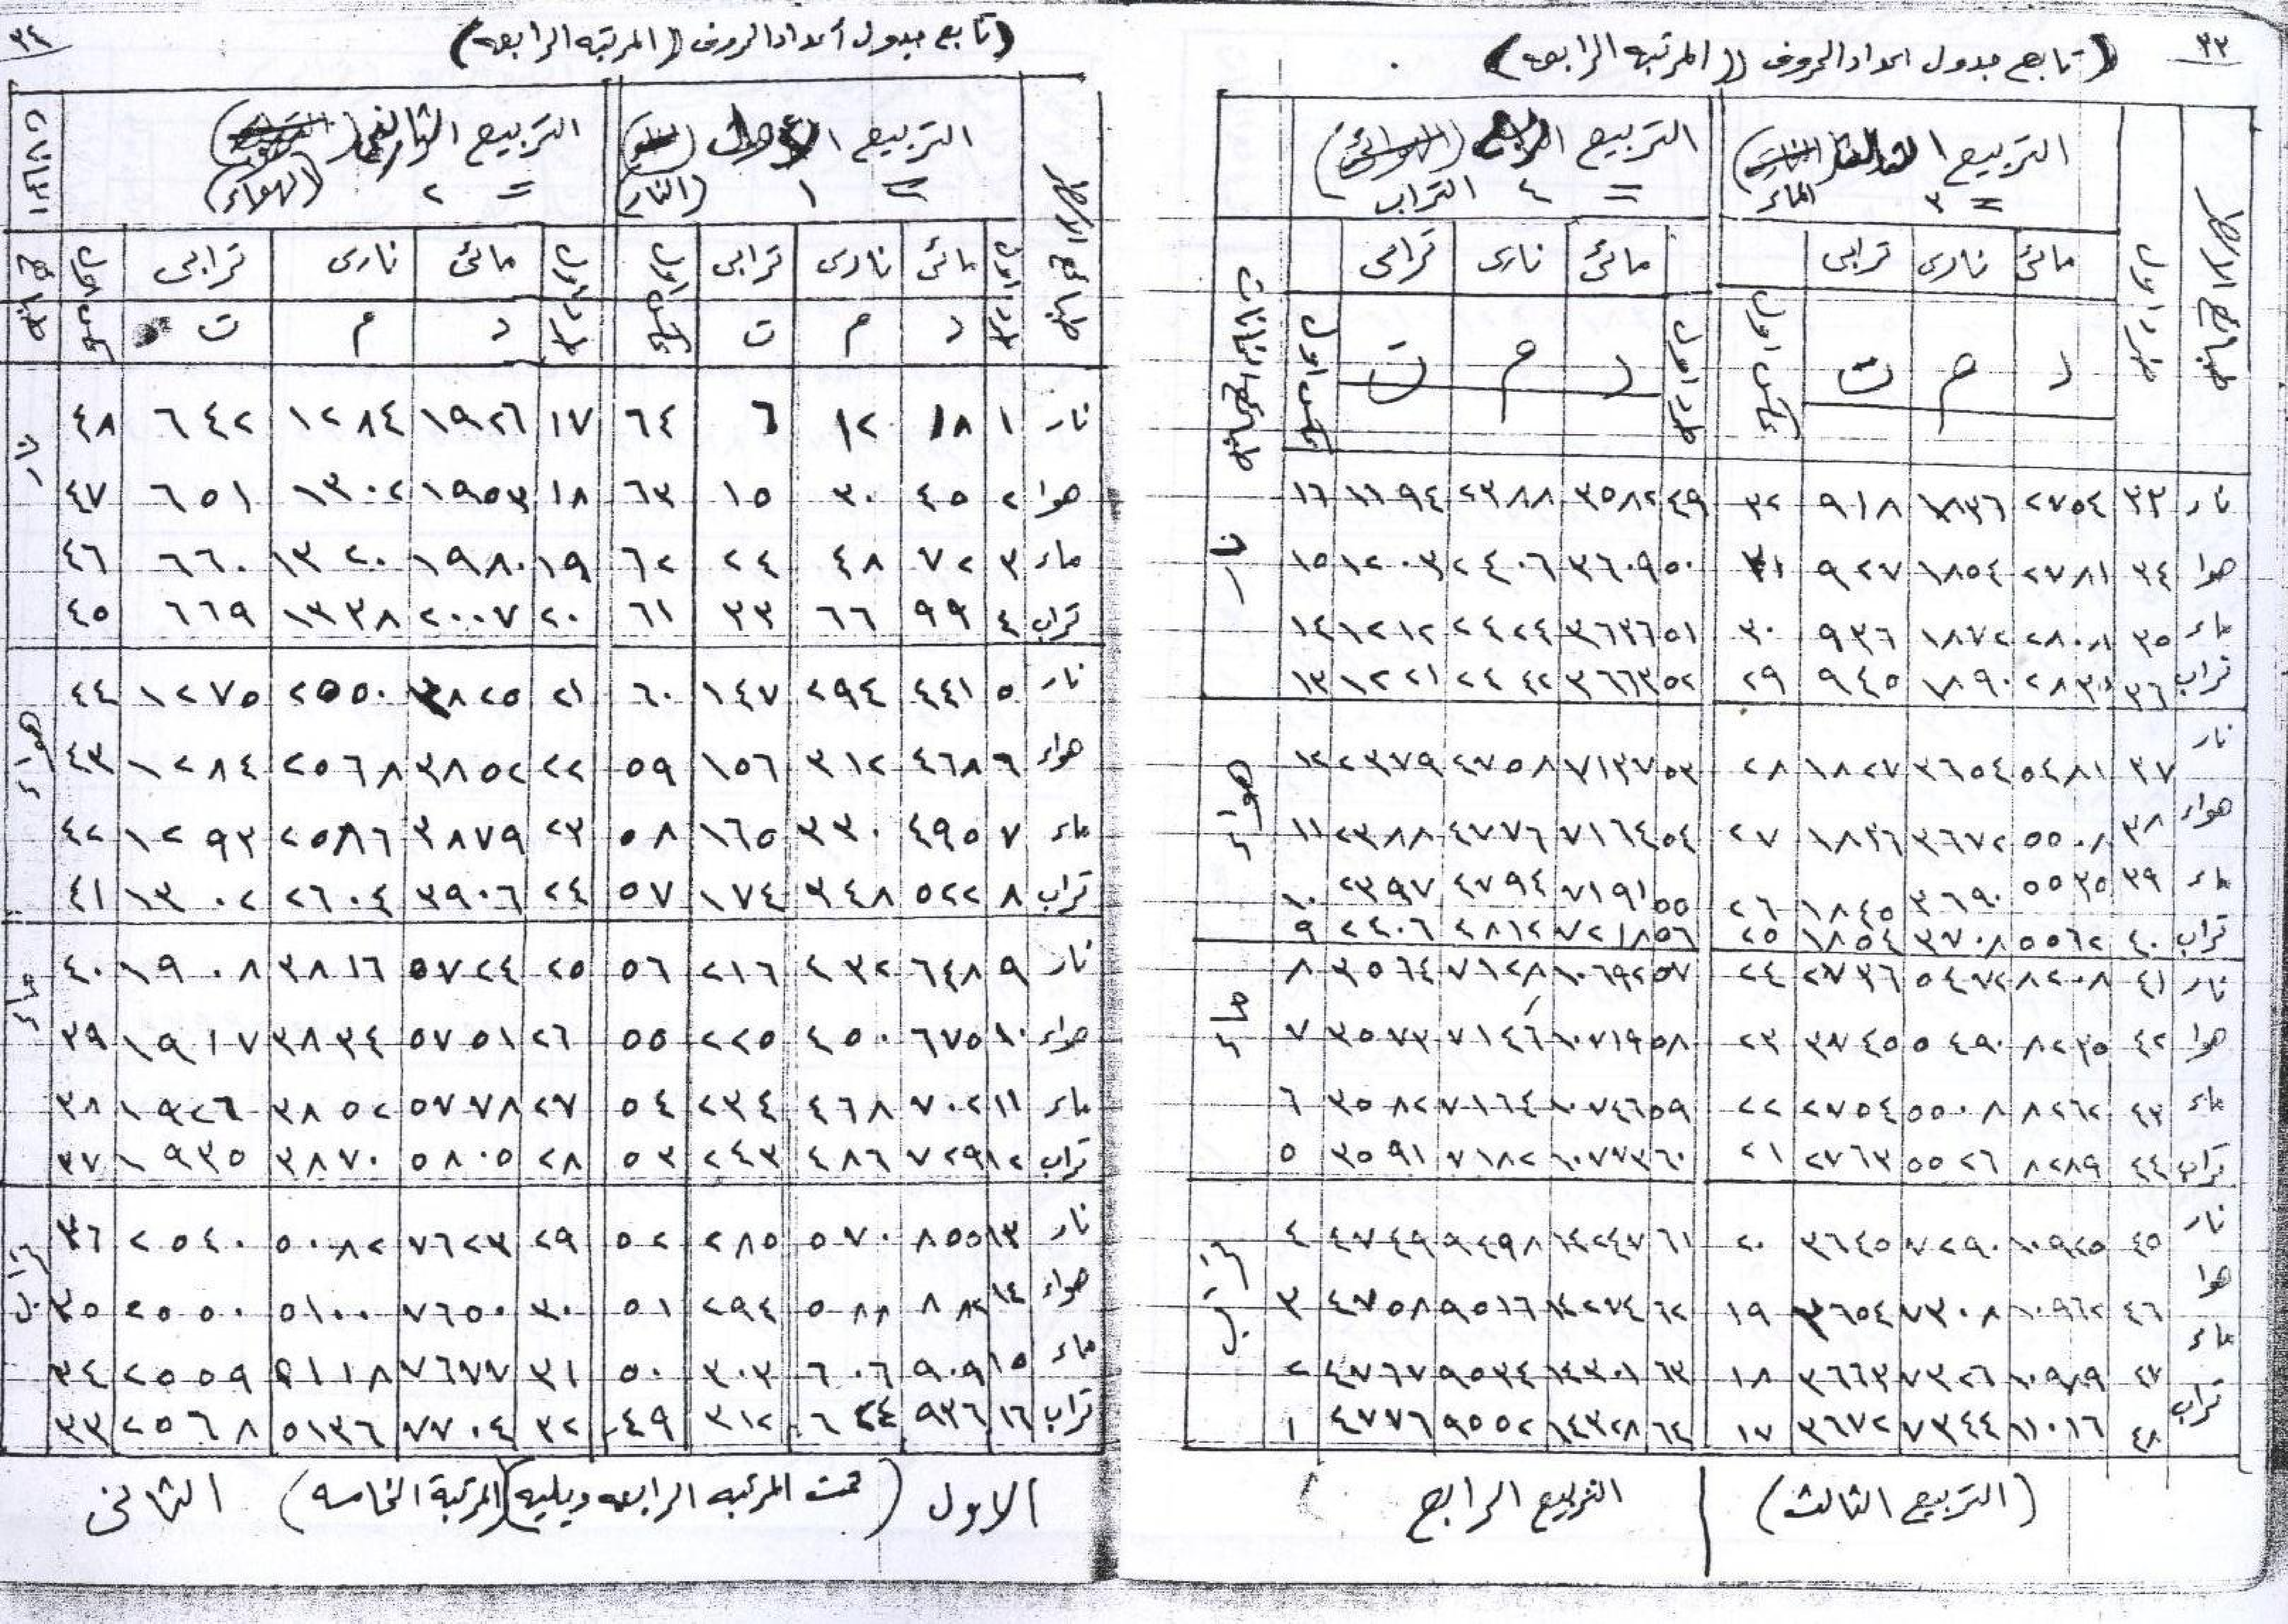 ٣٣
(تابع جدول اعداد الحروف ((المرتبه الرابعه)
التربيع الثالث
= ٣ الماء
التربيع الرابع
= ٤ التراب
مائى نارى ترابى مائى نارى ترابى
د م ت د م ت
طرد اول عكس اول طرد اول عكس اول
نار ٣٣ ٢٧٥٤ ١٨٣٦ ٩١٨ ٣٢ ٤٩ ٣٥٨٢ ٢٣٨٨ ١١٩٤ ١٦ نار
هوا ٣٤ ٢٧٨١ ١٨٥٤ ٩٢٧ ٣١ ٥٠ ٣٦٠٩ ٢٤٠٦ ١٢٠٣ ١٥
ماء ٣٥ ٢٨٠٨ ١٨٧٢ ٩٣٦ ٣٠ ٥١ ٣٦٣٦ ٢٤٢٤ ١٢١٢ ١٤
تراب ٣٦ ١٨٩٠ ٩٤٥ ٢٩ ٥٢ ٣٦٦٣ ٢٤٤٢ ١٢٢١ ١٣
نار ٣٧ ٥٤٨١ ٣٦٥٤ ١٨٢٧ ٢٨ ٥٣ ٧١٣٧ ٤٧٥٨ ٢٣٧٩ ١٢ هواء
هواء ٣٨ ٥٥٠٨ ٣٦٧٢ ١٨٣٦ ٢٧ ٥٤ ٧١٦٤ ٤٧٧٦ ٢٣٨٨ ١١
ماء ٣٩ ٥٥٣٥ ٣٦٩٠ ١٨٤٥ ٢٦ ٥٥ ٧١٩١ ٤٧٩٤ ٢٣٩٧ ١٠
تراب ٤٠ ٥٥٦٢ ٣٧٠٨ ١٨٥٤ ٢٥ ٥٦ ٧٢١٨ ٤٨١٢ ٢٤٠٦ ٩
نار ٤١ ٨٢٠٨ ٥٤٧٢ ٢٧٣٦ ٢٤ ٥٧ ١٠٦٩٢ ٧١٢٨ ٣٥٦٤ ٨ ماء
هوا ٤٢ ٨٢٣٥ ٥٤٩٠ ٢٧٤٥ ٢٣ ٥٨ ١٠٧١٩ ٧١٤٦ ٣٥٧٣ ٧
ماء ٤٣ ٨٢٦٢ ٥٥٠٨ ٢٧٥٤ ٢٢ ٥٩ ١٠٧٤٦ ٧١٦٤ ٣٥٨٢ ٦
تراب ٤٤ ٨٢٨٩ ٥٥٢٦ ٢٧٦٣ ٢١ ٦٠ ١٠٧٧٣ ٧١٨٢ ٣٥٩١ ٥
نار ٤٥ ١٠٩٣٥ ٧٢٩٠ ٣٦٤٥ ٢٠ ٦١ ١٤٢٤٧ ٩٤٩٨ ٤٧٤٩ ٤ تراب
هوا ٤٦ ١٠٩٦٢ ٧٣٠٨ ٣٦٥٤ ١٩ ٦٢ ١٤٢٧٤ ٩٥١٦ ٤٧٥٨ ٣
ماء ٤٧ ١٠٩٨٩ ٧٣٢٦ ٣٦٦٣ ١٨ ٦٣ ١٤٣٠١ ٩٥٣٤ ٤٧٦٧ ٢
تراب ٤٨ ١١٠١٦ ٧٣٤٤ ٣٦٧٢ ١٧ ٦٤ ١٤٣٢٨ ٩٥٥٢ ٤٧٧٦ ١
(التربيع الثالث) التربيع الرابع
٣٤
(تابع جدول أعداد الحروف ((المرتبه الرابعه)
التربيع الأول
= ١ (النار)
التربيع الثانى
= ٢ (الهواء)
مائى نارى ترابى مائى نارى ترابى
د م ت د م ت
نار ١ ١٨ ١٢ ٦ ٦٤ ١٧ ١٩٢٦ ١٢٨٤ ٦٤٢ ٤٨ نار
هوا ٢ ٤٥ ٣٠ ١٥ ٦٣ ١٨ ١٩٥٣ ١٣٠٢ ٦٥١ ٤٧
ماء ٣ ٧٢ ٤٨ ٢٤ ٦٢ ١٩ ١٩٨٠ ١٣٢٠ ٦٦٠ ٤٦
تراب ٤ ٩٩ ٦٦ ٣٣ ٦١ ٢٠ ٢٠٠٧ ١٣٣٨ ٦٦٩ ٤٥
نار ٥ ٤٤١ ٢٩٤ ١٤٧ ٦٠ ٢١ ٣٨٢٥ ٢٥٥٠ ١٢٧٥ ٤٤ هواء
هواء ٦ ٤٦٨ ٣١٢ ١٥٦ ٥٩ ٢٢ ٣٨٥٢ ٢٥٦٨ ١٢٨٤ ٤٣
ماء ٧ ٤٩٥ ٣٣٠ ١٦٥ ٥٨ ٢٣ ٣٨٧٩ ٢٥٨٦ ١٢٩٣ ٤٢
تراب ٨ ٥٢٢ ٣٤٨ ١٧٤ ٥٧ ٢٤ ٣٩٠٦ ٢٦٠٤ ١٣٠٢ ٤١
نار ٩ ٦٤٨ ٤٣٢ ٢١٦ ٥٦ ٢٥ ٥٧٢٤ ٣٨١٦ ١٩٠٨ ٤٠ ماء
هواء ١٠ ٦٧٥ ٤٥٠ ٢٢٥ ٥٥ ٢٦ ٥٧٥١ ٣٨٣٤ ١٩١٧ ٣٩
ماء ١١ ٧٠٢ ٤٦٨ ٢٣٤ ٥٤ ٢٧ ٥٧٧٨ ٣٨٥٢ ١٩٢٦ ٣٨
تراب ١٢ ٧٢٩ ٤٨٦ ٢٤٣ ٥٣ ٢٨ ٥٨٠٥ ٣٨٧٠ ١٩٣٥ ٣٧
نار ١٣ ٨٥٥ ٥٧٠ ٢٨٥ ٥٢ ٢٩ ٧٦٢٣ ٥٠٨٢ ٢٥٤٠ ٣٦ تراب
هواء ١٤ ٨٨٢ ٥٨٨ ٢٩٤ ٥١ ٣٠ ٧٦٥٠ ٥١٠٠ ٢٥٥٠ ٣٥
ماء ١٥ ٩٠٩ ٦٠٦ ٣٠٣ ٥٠ ٣١ ٧٦٧٧ ٥١١٨ ٢٥٥٩ ٣٤
تراب ١٦ ٩٣٦ ٦٢٤ ٣١٢ ٤٩ ٣٢ ٧٧٠٤ ٥١٣٦ ٢٥٦٨ ٣٣
الاول (تمت المرتبه الرابعه ويليه)(المرتبة الخامسه) الثانى